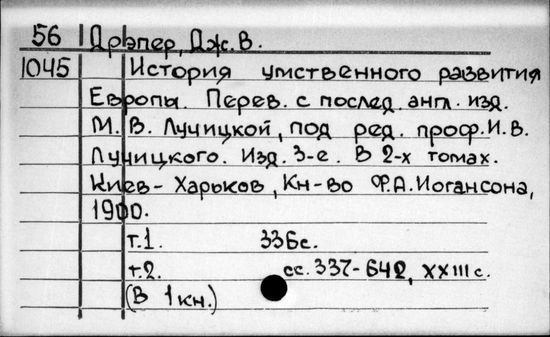 56 Дрэпер, Дж. В.
1045 История умственного развития
Европы. Перев. с послед. англ. изд.
М. В. Лучицкой, под ред. проф. И. В.
Лучицкого. Изд. 3-е. В 2-х томах.
Киев - Харьков, Кн-во Ф.А. Иогансона,
1900.
т.1. 336с.
т.2. сс. 337-642, XXIII с.
(В 1 кн.)